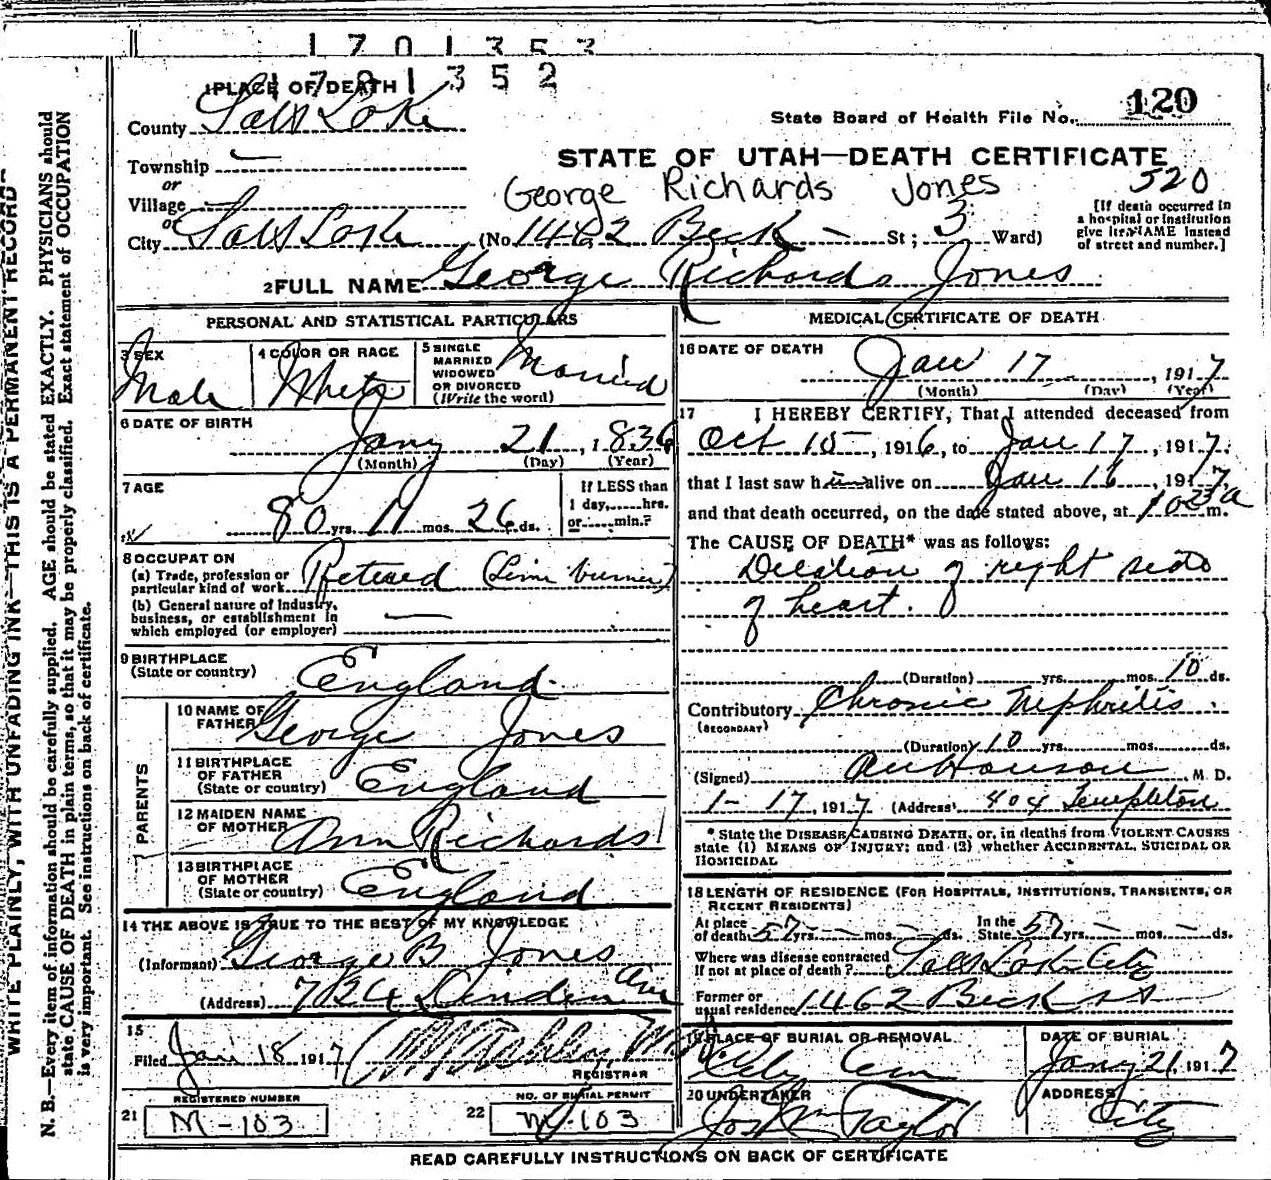 1701353
1701352
1 PLACE OF DEATH
County Salt Lake
State Board of Health File No. 120
Township
or
Village
or
STATE OF UTAH—DEATH CERTIFICATE
George Richards Jones 520
City Salt Lake (No 1462 Beck St; 3 Ward)
[If death occurred in
a hospital or institution
give its NAME instead
of street and number.]
2 FULL NAME George Richards Jones
PERSONAL AND STATISTICAL PARTICULARS
3 SEX
Male
4 COLOR OR RACE
White
5 SINGLE
MARRIED
WIDOWED
OR DIVORCED
(Write the word)
Married
6 DATE OF BIRTH
Jany 21, 1836
(Month) (Day) (Year)
7 AGE
80 yrs. 11 mos. 26 ds.
If LESS than
1 day,.....hrs.
or.....min.?
8 OCCUPATION
(a) Trade, profession or
particular kind of work Retired (Lime burner)
(b) General nature of Industry,
business, or establishment in
which employed (or employer)
9 BIRTHPLACE
(State or country) England
PARENTS
10 NAME OF
FATHER George Jones
11 BIRTHPLACE
OF FATHER
(State or country) England
12 MAIDEN NAME
OF MOTHER Ann Richards
13 BIRTHPLACE
OF MOTHER
(State or country) England
14 THE ABOVE IS TRUE TO THE BEST OF MY KNOWLEDGE
(Informant) George B Jones
(Address) Linden Ave
15
Filed Jan 18 1917
REGISTRAR
REGISTERED NUMBER
21 M-103
NO. OF BURIAL PERMIT
22 M-103
MEDICAL CERTIFICATE OF DEATH
16 DATE OF DEATH
Jan 17, 1917
(Month) (Day) (Year)
17 I HEREBY CERTIFY, That I attended deceased from
Oct 15, 1916, to Jan 17, 1917.
that I last saw him alive on Jan 16, 1917
and that death occurred, on the date stated above, at m.
The CAUSE OF DEATH* was as follows:
Dilation of right side
of heart.
(Duration) yrs. mos. 10 ds.
Contributory Chronic Nephritis.
(SECONDARY)
(Duration) 10 yrs. mos. ds.
(Signed) M. D.
1-17, 1917 (Address) 404 Templeton
* State the DISEASE CAUSING DEATH, or, in deaths from VIOLENT CAUSES
state (1) MEANS OF INJURY; and (2) whether ACCIDENTAL, SUICIDAL OR
HOMICIDAL
18 LENGTH OF RESIDENCE (FOR HOSPITALS, INSTITUTIONS, TRANSIENTS, OR
RECENT RESIDENTS)
At place
of death 57 yrs. — mos. — ds.
In the
State 57 yrs. — mos. — ds.
Where was disease contracted
if not at place of death? Salt Lake City
Former or
usual residence 1462 Beck st
19 PLACE OF BURIAL OR REMOVAL
City Cem
DATE OF BURIAL
Jany 21, 1917
20 UNDERTAKER
Jos Wm Taylor
ADDRESS
City
READ CAREFULLY INSTRUCTIONS ON BACK OF CERTIFICATE
WRITE PLAINLY, WITH UNFADING INK—THIS IS A PERMANENT RECORD
N. B.—Every item of information should be carefully supplied. AGE should be stated EXACTLY. PHYSICIANS should
state CAUSE OF DEATH in plain terms, so that it may be properly classified. Exact statement of OCCUPATION
is very important. See instructions on back of certificate.